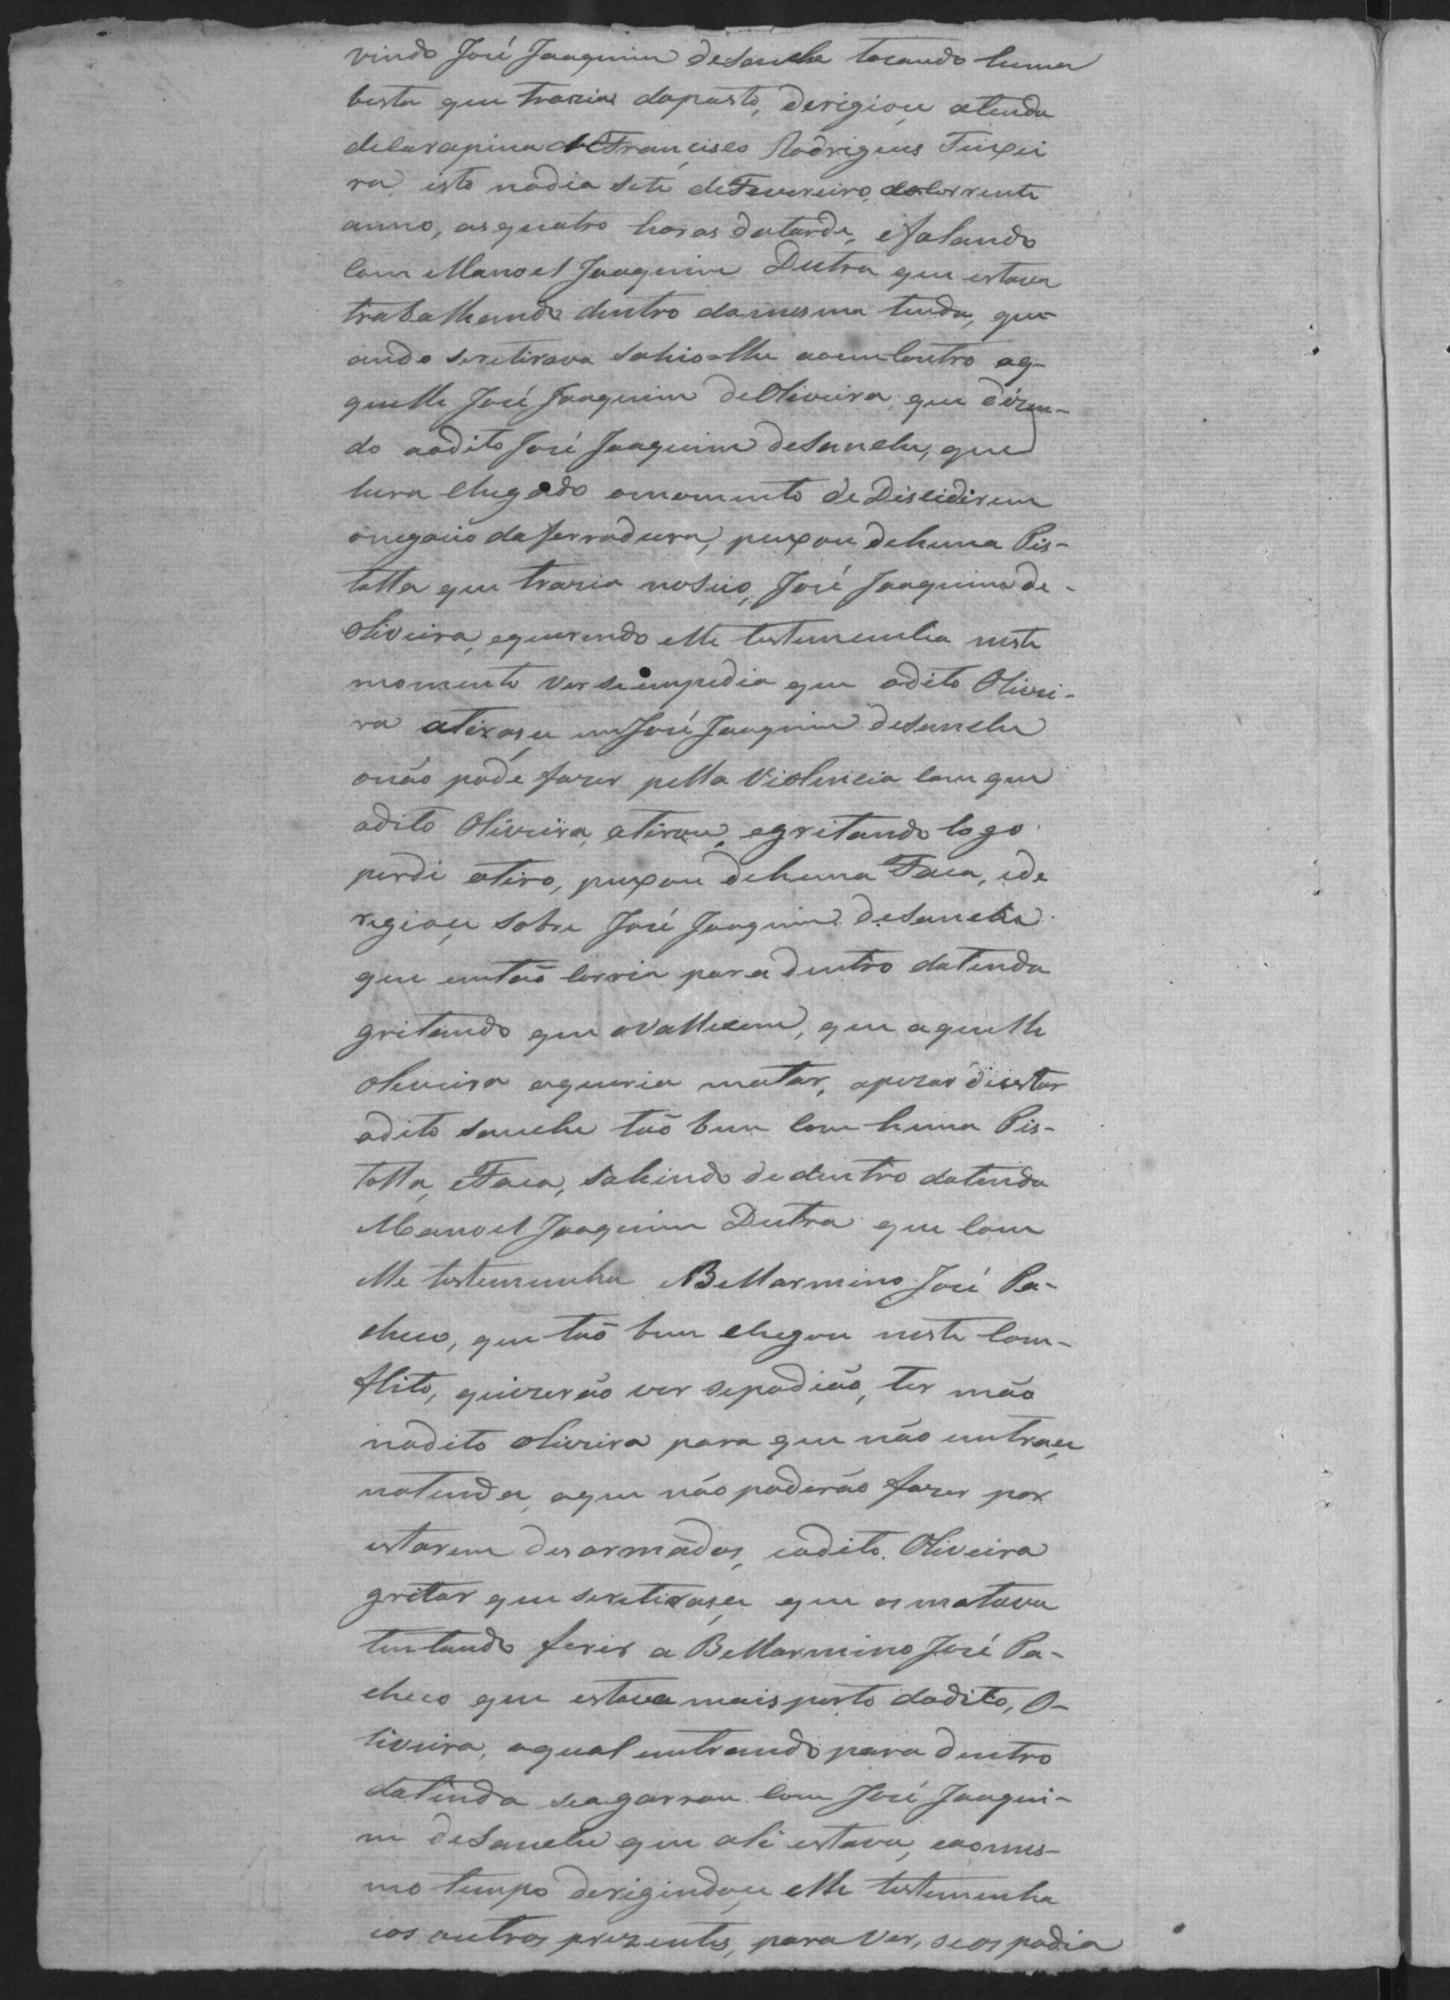 vindo José Joaquim deSanche tocando huma
besta que trazia dopasto, derigiou atenda
decarapina de Francisco Rodrigues Teixei
ra, isto nodia sete deFevereiro, docorrente
anno, asquatro horas datarde, efalando
com Manoel Joaquim Dutra que estava
trabalhando dentro damesma tenda, qu-
ando seretirava sahio-lhe aoemcontro aq-
quelle José Joaquim deOliveira, que dizen-
do aodito José Joaquim deSanche, que
hera chegado omomento de Disidirem
onegocio daferradura, puxou dehuma Pis-
tolla que trazia noSeio, José Joaquim de-
Oliveira, equerendo elle testemunha neste
momento ver seimpedia que odito Olivei-
ra atirase em José Joaquim deSanche
onão pode fazer pella Violencia com que
odito Oliveira, atirou, egritando logo
perdi otiro, puxou dehuma Faca, ede
regiou sobre José Joaquim deSanche
que então corria para dentro datenda
gritando que ovallesem, que aquelle
Oliveira oqueria matar, apezar deestar
odito Sanche tão bem com huma Pis-
tolla, eFaca, sahindo de dentro datenda
Manoel Joaquim Dutra que com
elle testemunha eBellarmino José Pa-
checo, que tão bem chegou neste com-
flito, quizerão ver sepodião, ter mão
nodito Oliveira para que não entrase
natenda, oque não poderão fazer por
estarem desarmados, eodito Oliveira
gritar que seretirase que os matava
tentando ferir a Bellarmino José Pa-
checo que estava mais perto dodito, O-
liveira, oqual entrando para dentro
datenda seagarrou com José Joaqui-
m deSanche que ali estava, eaomes-
mo tempo derigindose elle testemunha
eos outros prezentes, para ver, seos podia